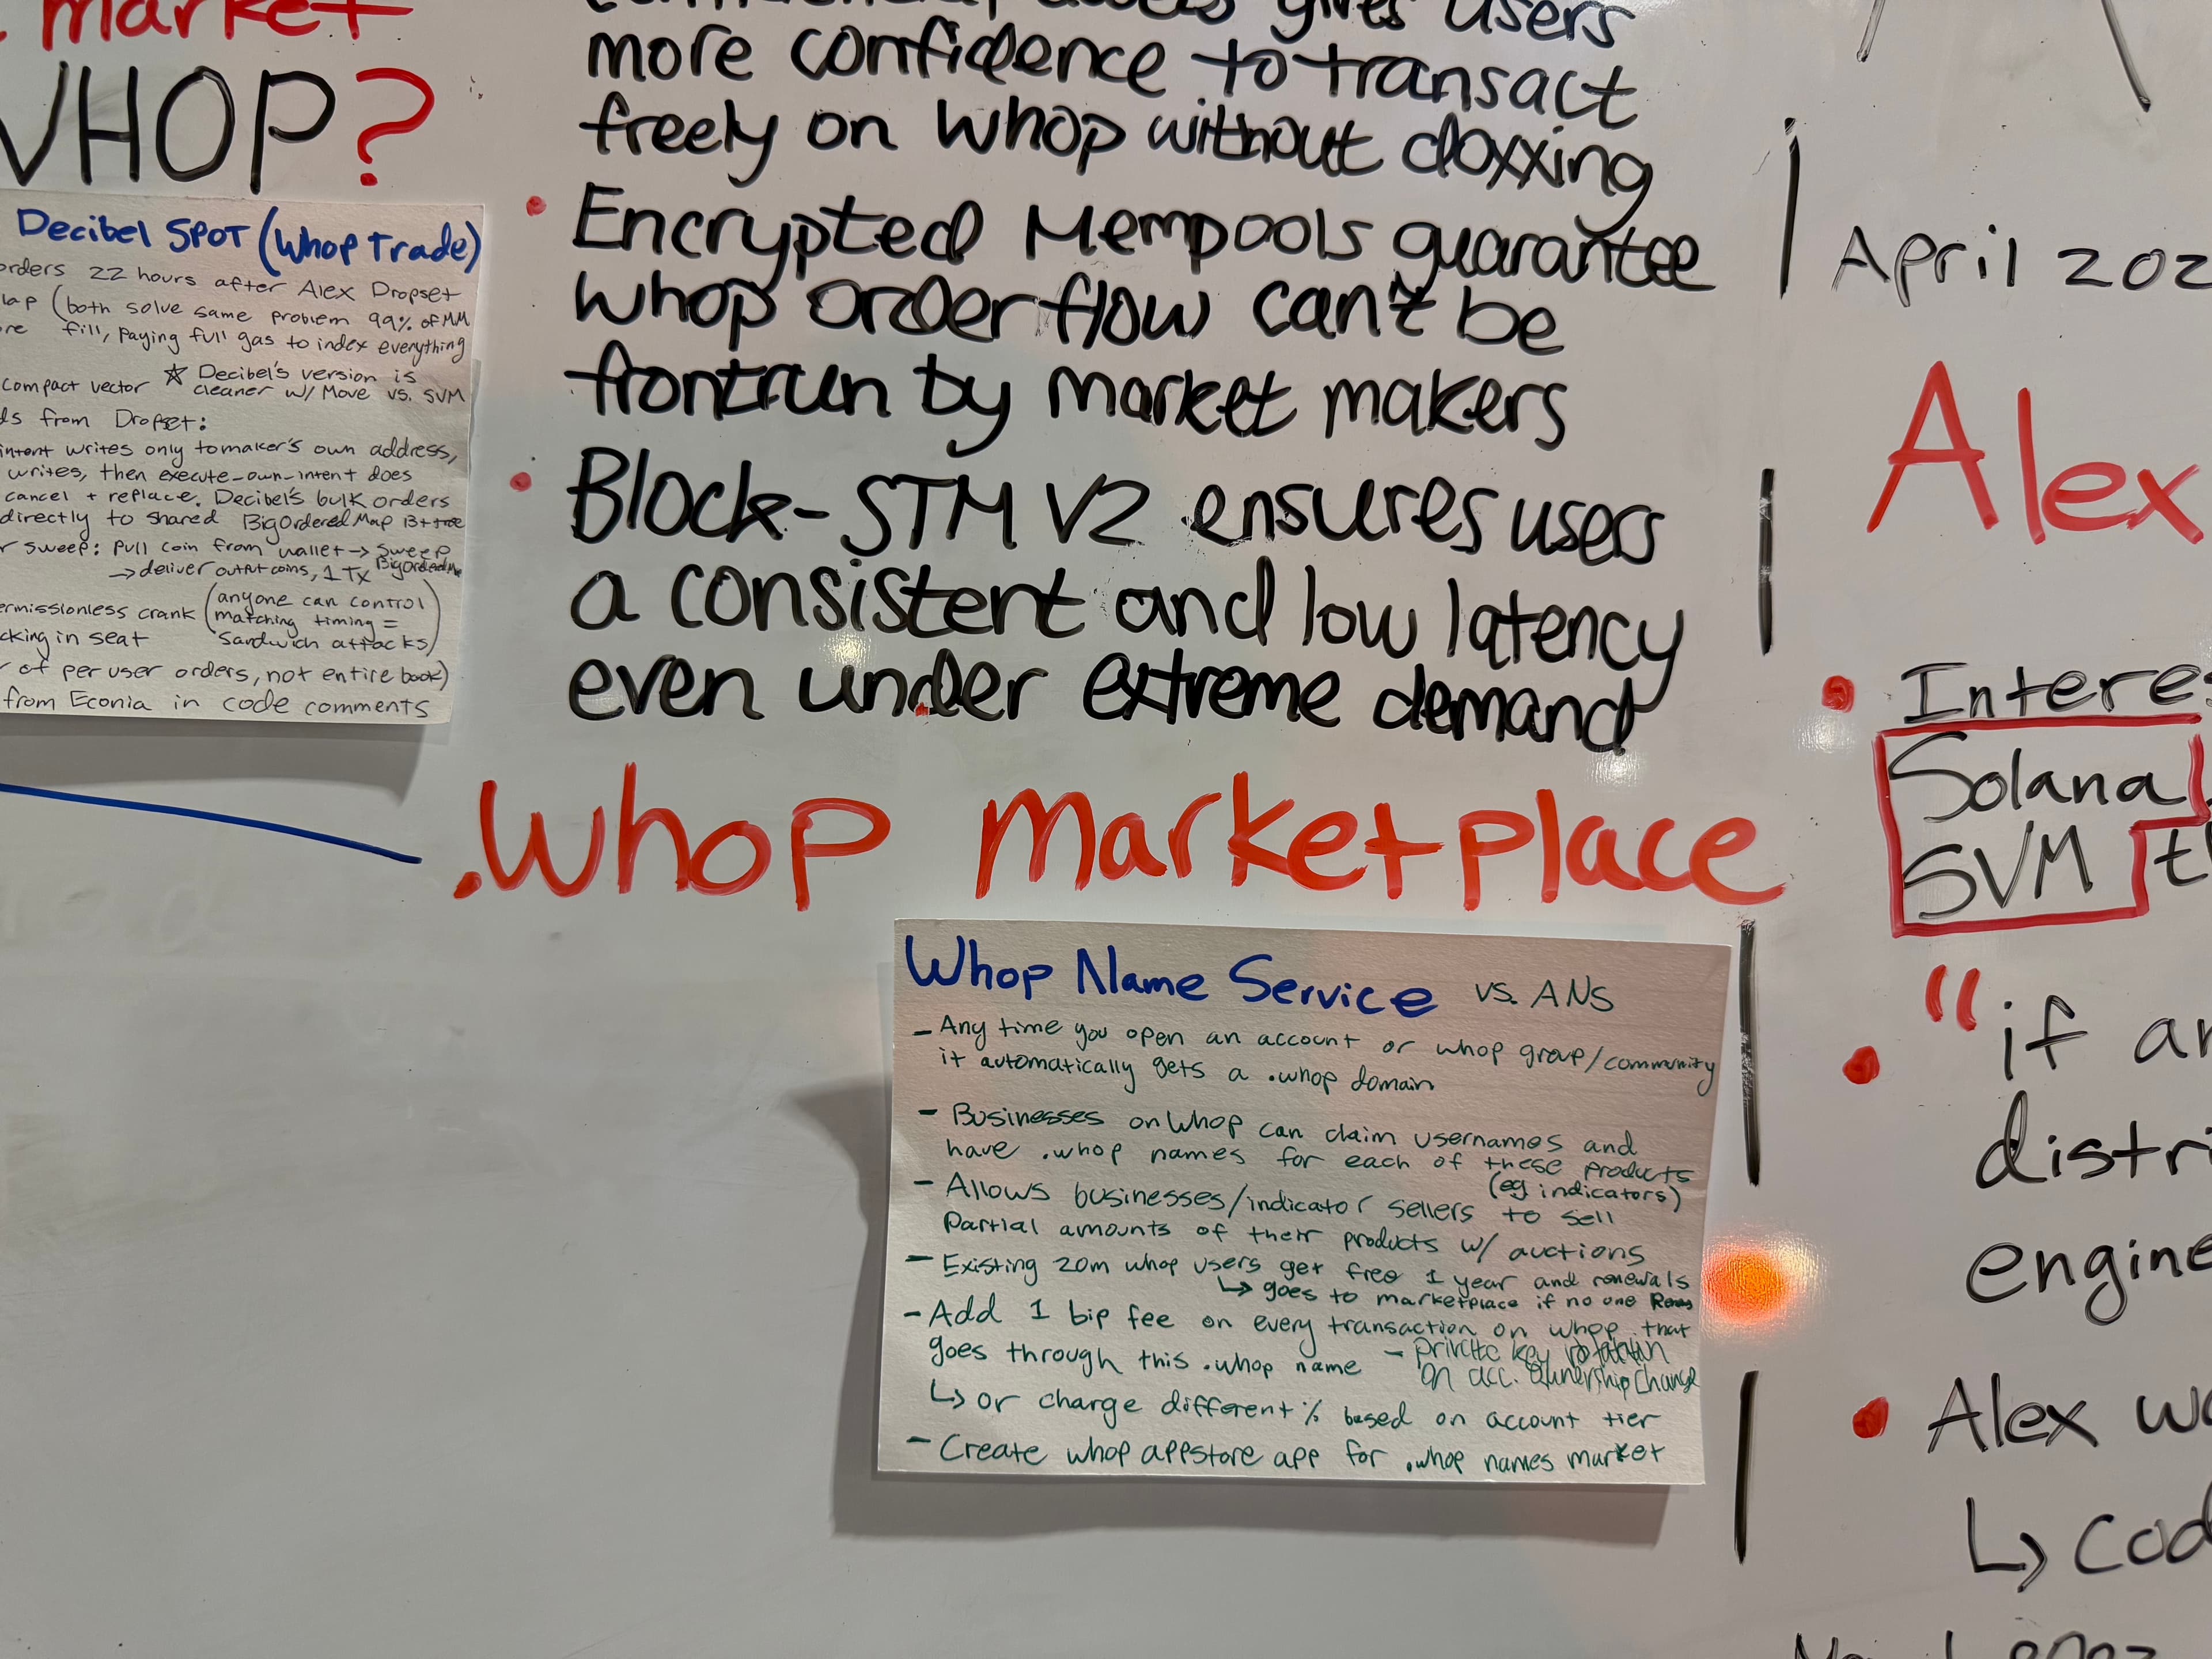 market
WHOP?
Decibel SPOT (Whop Trade)
orders 22 hours after Alex Dropset
(both solve same problem 99% of MM
fill, paying full gas to index everything
compact vector ☆ Decibel's version is
cleaner w/ Move vs. SVM
from Dropset:
intent writes only to maker's own address,
writes, then execute-own-intent does
cancel + replace. Decibel's bulk orders
directly to shared BigOrderedMap B+tree
sweep: pull coin from wallet → sweep
→ deliver output coins, 1 Tx
crank (anyone can control
matching timing =
in seat sandwich attacks)
of per user orders, not entire book)
from Econia in code comments
access gives users
more confidence to transact
freely on Whop without doxxing
• Encrypted Mempools guarantee
whop order flow can't be
frontrun by market makers
• Block-STM V2 ensures users
a consistent and low latency
even under extreme demand
.Whop Marketplace
Whop Name Service vs. ANS
- Any time you open an account or whop group/community
it automatically gets a .whop domain
- Businesses on Whop can claim usernames and
have .whop names for each of these products
(eg indicators)
- Allows businesses/indicator sellers to sell
partial amounts of their products w/ auctions
- Existing 20m whop users get free 1 year and renewals
↳ goes to marketplace if no one
- Add 1 bip fee on every transaction on whop that
goes through this .whop name
- private key rotation
on acc. ownership change
↳ or charge different % based on account tier
- Create whop appstore app for .whop names market
April
Alex
•
Solana
SVM
• "if
• Alex
↳